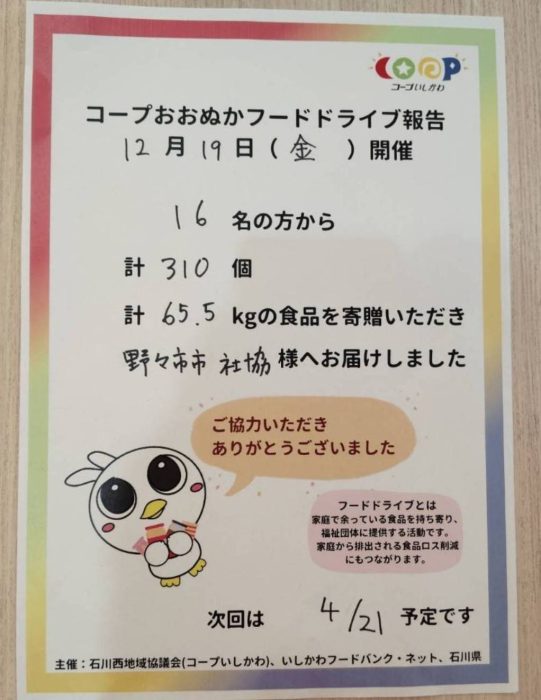 COOP
コープいしかわ
コープおおぬかフードドライブ報告
12月19日(金)開催
16名の方から
計310個
計65.5kgの食品を寄贈いただき
野々市市 社協様へお届けしました
ご協力いただき
ありがとうございました
フードドライブとは
家庭で余っている食品を持ち寄り、
福祉団体に提供する活動です。
家庭から排出される食品ロス削減
にもつながります。
次回は 4/21 予定です
主催：石川西地域協議会(コープいしかわ)、いしかわフードバンク・ネット、石川県